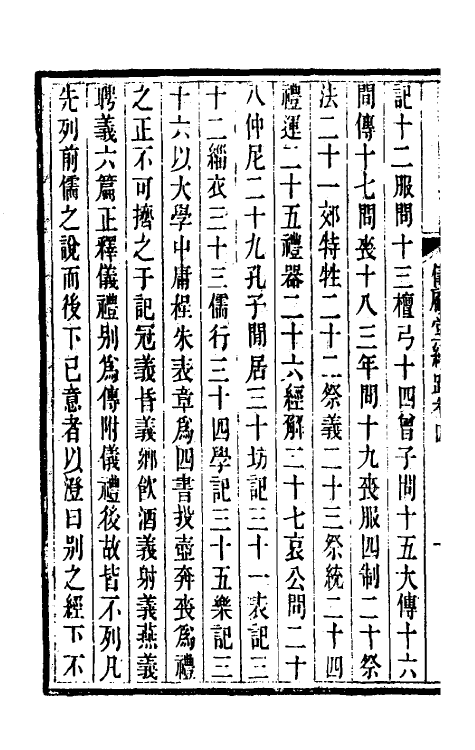 記十二服問十三檀弓十四曾子問十五大傳十六
間傳十七問喪十八三年問十九喪服四制二十祭
法二十一郊特牲二十二祭義二十三祭統二十四
禮運二十五禮器二十六經解二十七哀公問二十
八仲尼二十九孔子閒居三十坊記三十一表記三
十二緇衣三十三儒行三十四學記三十五樂記三
十六以大學中庸程朱表章爲四書投壺奔喪爲禮
之正不可擠之于記冠義昏義鄉飲酒義射義燕義
聘義六篇正釋儀禮别爲傳附儀禮後故皆不列凡
先列前儒之說而後下己意者以澄曰别之經下不